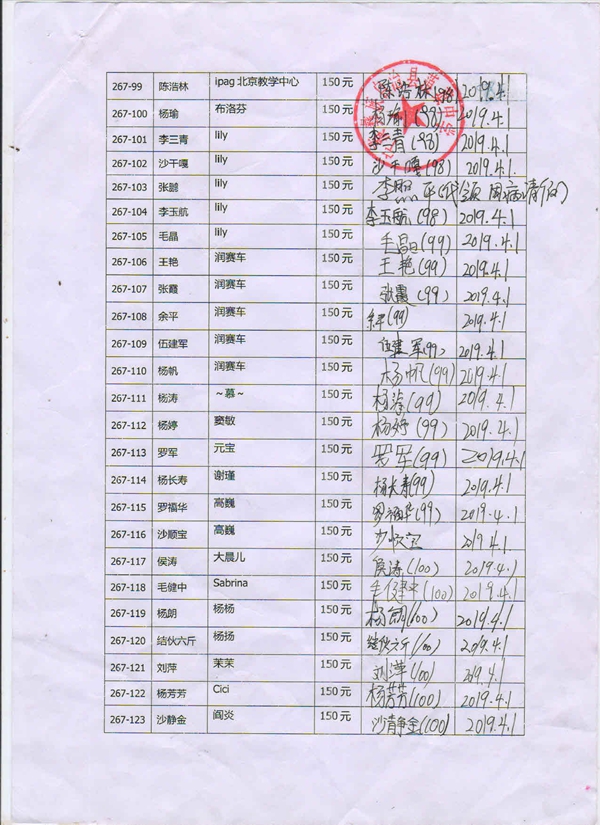 267-99 陈浩林 ipag 北京教学中心 150 元 陈浩林(98) 2019.4.1
267-100 杨瑜 布洛芬 150 元 杨瑜(98) 2019.4.1
267-101 李三青 lily 150 元 李三青(98) 2019.4.1
267-102 沙干嘎 lily 150 元 沙干嘎(98) 2019.4.1
267-103 张 lily 150 元 代领 因病请假
267-104 李玉航 lily 150 元 李玉航(98) 2019.4.1
267-105 毛晶 lily 150 元 毛晶(99) 2019.4.1
267-106 王艳 润赛车 150 元 王艳(99) 2019.4.1
267-107 张霞 润赛车 150 元 张霞(99) 2019.4.1
267-108 余平 润赛车 150 元 (99) 2019.4.1
267-109 伍建军 润赛车 150 元 伍建军(99) 2019.4.1
267-110 杨帆 润赛车 150 元 杨帆(99) 2019.4.1
267-111 杨涛 ~慕~ 150 元 杨涛(99) 2019.4.1
267-112 杨婷 窦敏 150 元 杨婷(99) 2019.4.1
267-113 罗军 元宝 150 元 罗军(99) 2019.4.1
267-114 杨长寿 谢瑾 150 元 杨长寿(99) 2019.4.1
267-115 罗福华 高巍 150 元 罗福华(99) 2019.4.1
267-116 沙顺宝 高巍 150 元 2019.4.1
267-117 侯涛 大晨儿 150 元 侯涛(100) 2019.4.1
267-118 毛健中 Sabrina 150 元 毛健中(100) 2019.4.1
267-119 杨朗 杨杨 150 元 杨朗(100) 2019.4.1
267-120 结伙六斤 杨扬 150 元 结伙六斤(100) 2019.4.1
267-121 刘萍 茉茉 150 元 刘萍(100) 2019.4.1
267-122 杨芳芳 Cici 150 元 杨芳芳(100) 2019.4.1
267-123 沙静金 阎炎 150 元 沙静金(100) 2019.4.1